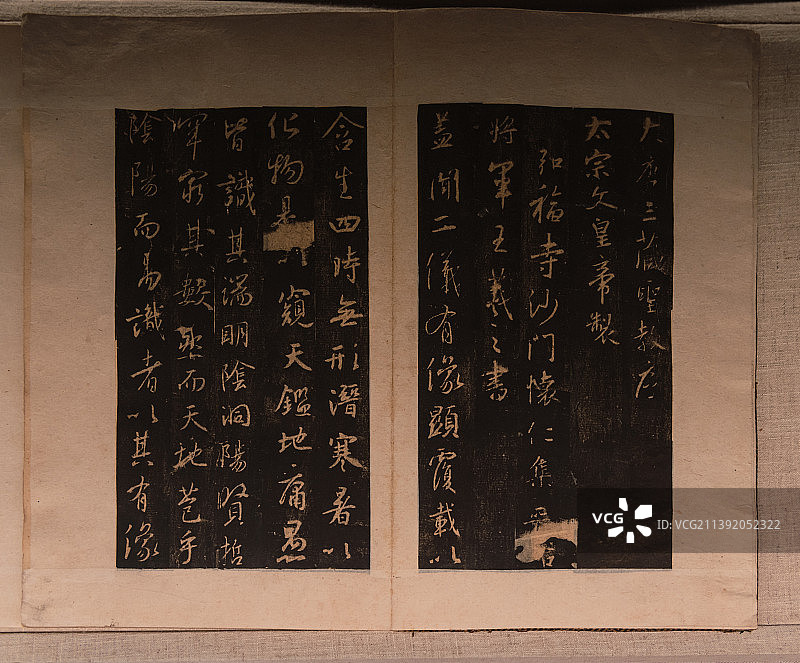 大唐三藏聖教序
太宗文皇帝製
弘福寺沙門懷仁集晉右
將軍王羲之書
蓋聞二儀有像顯覆載以
含生四時無形潛寒暑以
化物是以窺天鑑地庸愚
皆識其端明陰洞陽賢哲
罕窮其數然而天地苞乎
陰陽而易識者以其有像
VCG
ID:VCG211392052322